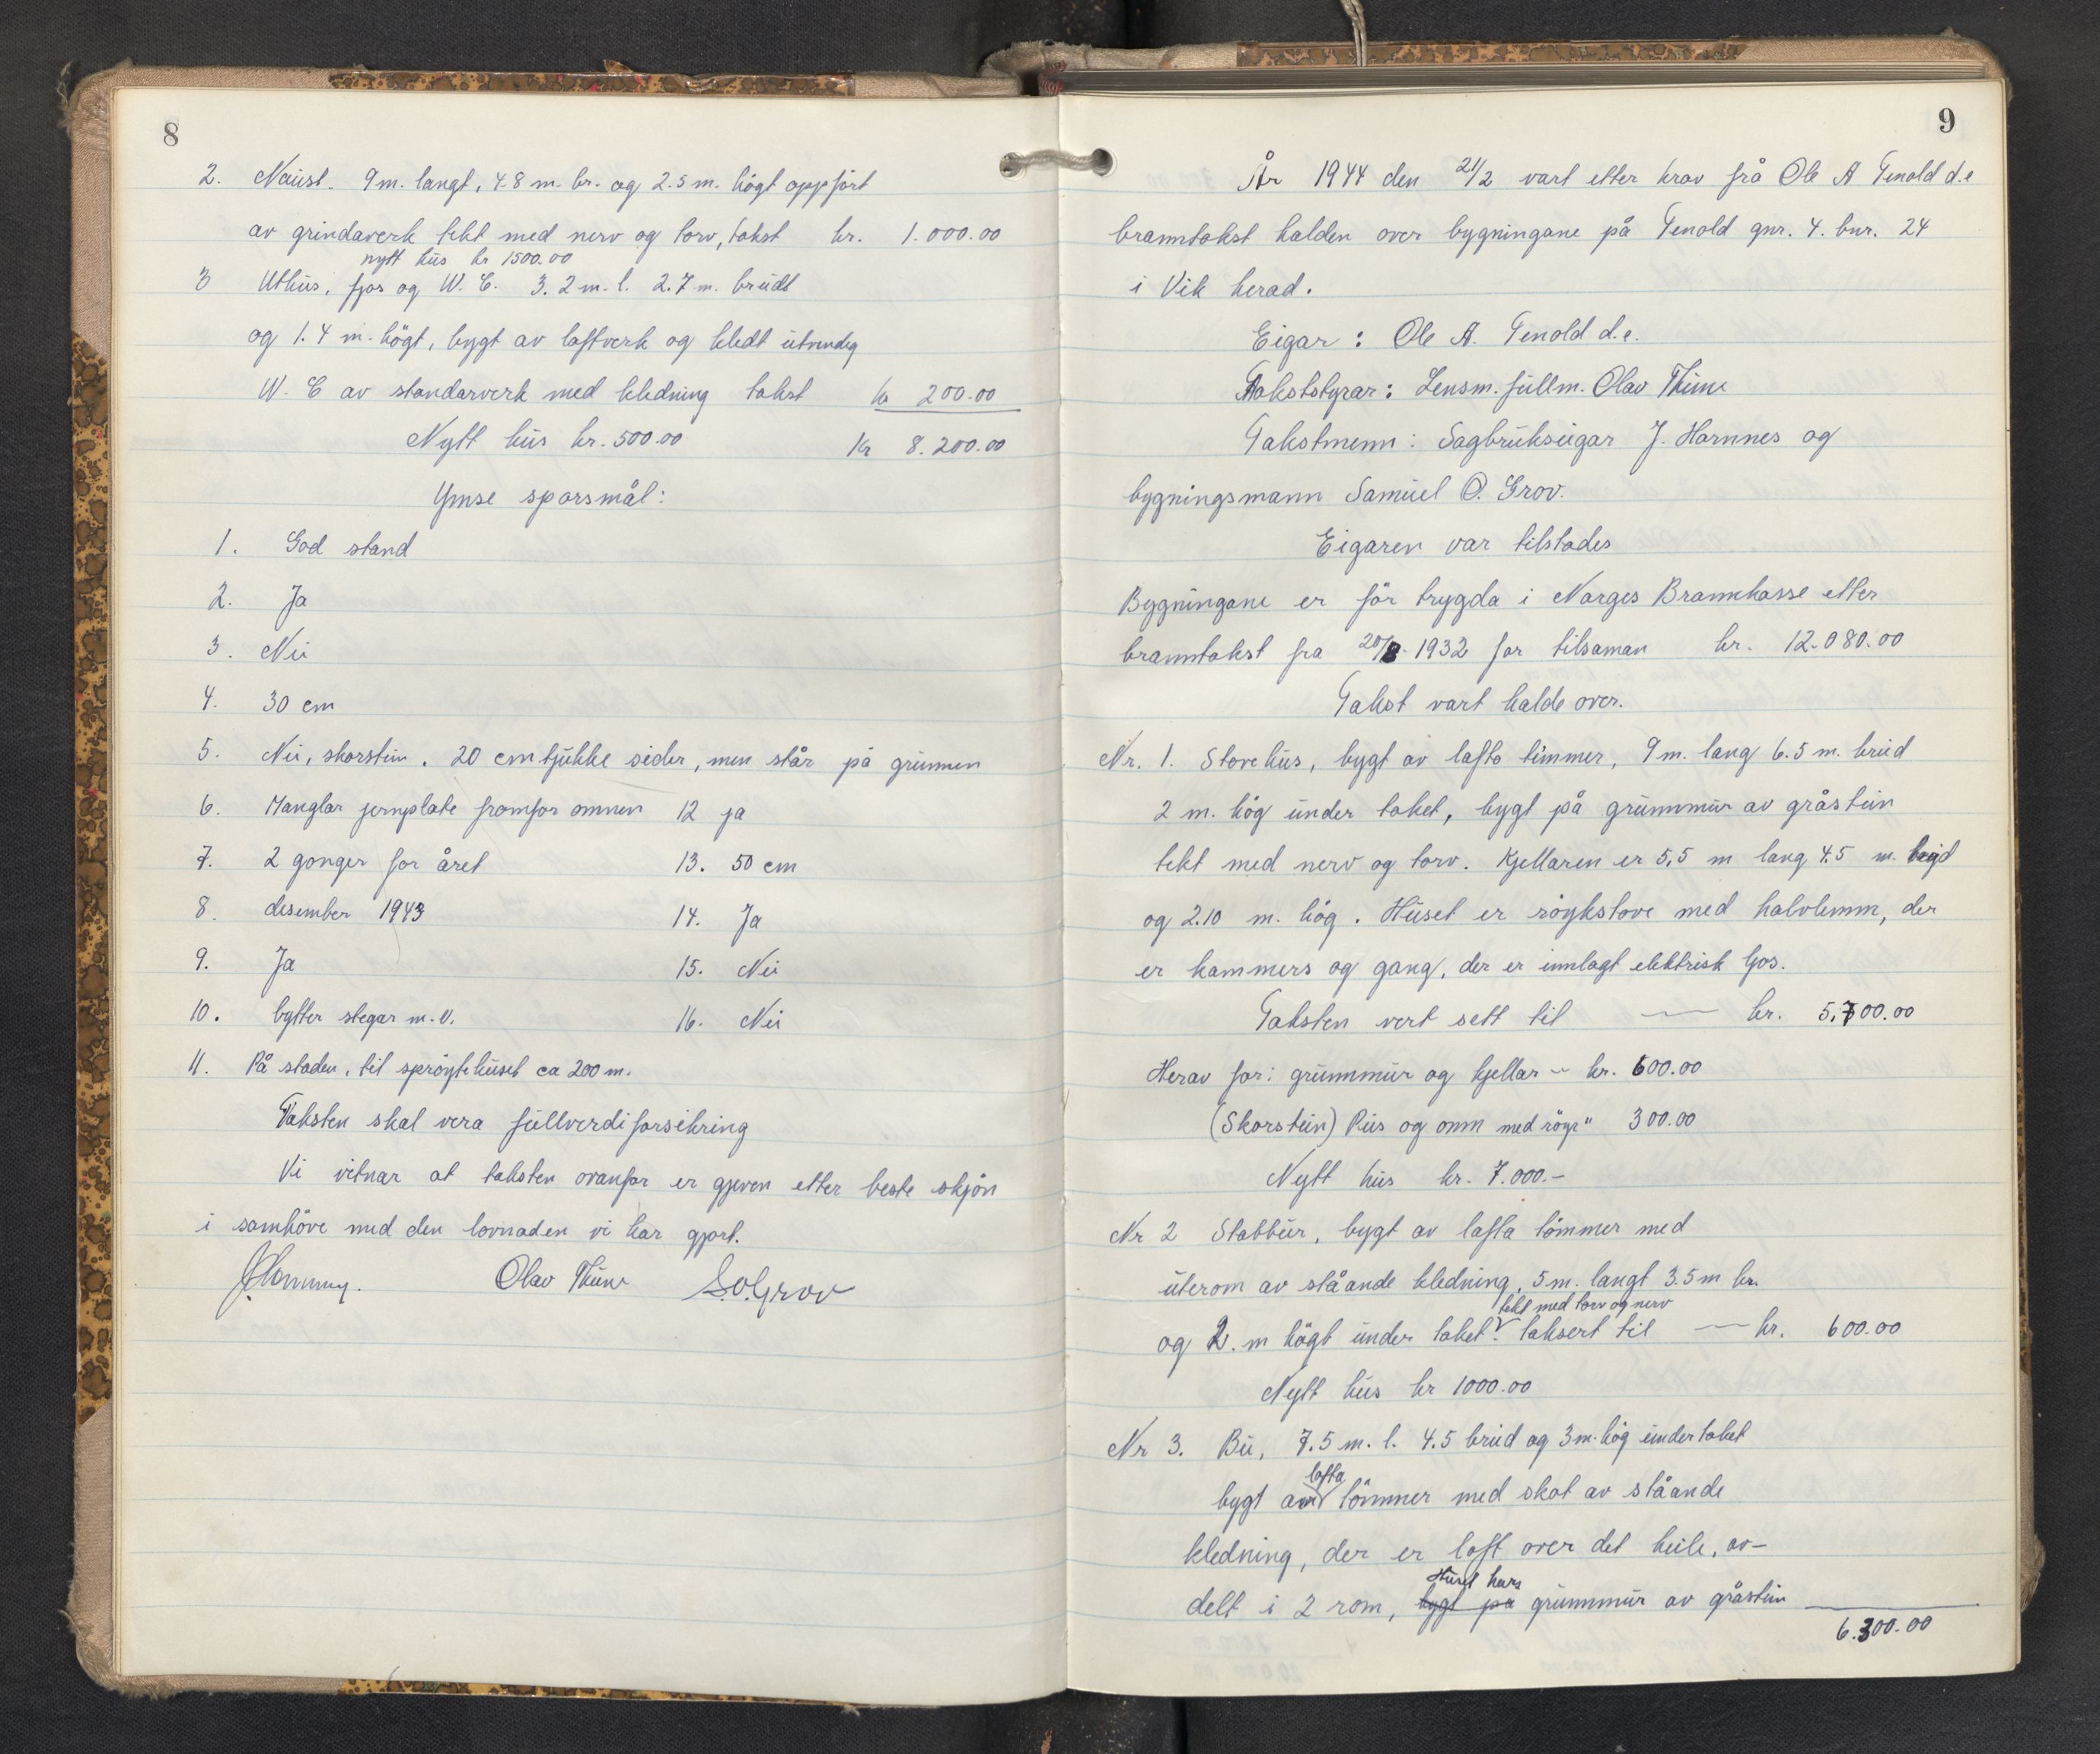 8
2. Naust. 9 m. langt, 4.8 m. br. og 2.5 m. högt oppfört
av grindaverk tekt med nerv og torv, takst kr. 1.000.00
nytt hus kr 1500.00
3 Uthus, fjos og W.C. 3.2 m. l. 2.7 m. breidt
og 1.4 m. högt, bygt av loftverk og kledt utvendig
W.C av standarverk med kledning takst kr 200.00
Nytt hus kr. 500.00 Kr 8.200.00
Ymse sporsmål:
1. God stand
2. Ja
3. Nei
4. 30 cm
5. Nei, skorstein. 20 cm tjukke sider, men står på grunnen
6. Manglar jernplate framfor omnen 12 ja
7. 2 gonger for året 13. 50 cm
8. desember 1943 14. Ja
9. Ja 15. Nei
10. bytter stegar m.v. 16. Nei
11. På staden, til sprøytehuset ca 200 m.
Taksten skal vera fullverdiforsikring
Vi vitnar at taksten ovanfor er gjeven etter beste skjön
i samhöve med den lovnaden vi har gjort.
Olav Thune S.O.Grov
9
År 1944 den 21/2 vart etter krav frå Ole A Tenold d.e
branntakst halden over bygningane på Tenold gnr. 4. bnr. 24
i Vik herad.
Eigar: Ole A. Tenold d.e.
Takststyrar: Lensm. fullm. Olav Thune
Takstmenn: Sagbrukseigar J. Hamnes og
bygningsmann Samuel O. Grov.
Eigaren var tilstades
Bygningane er för trygda i Norges Brannkasse etter
branntakst fra 20/8-1932 for tilsaman kr. 12.080.00
Takst vart halde over.
Nr. 1. Stovehus, bygt av lafta timmer, 9 m. lang 6.5 m. breid
2 m. hög under taket, bygt på grunnmur av gråstein
tekt med nerv og torv. Kjellaren er 5,5 m lang 4.5 m. breid
og 2.10 m. hög. Huset er röykstove med halvlemm, der
er kammers og gang, der er innlagt elektrisk ljos.
Taksten vert sett til — kr. 5.700.00
Herav for: grunnmur og kjellar — kr. 600.00
(Skorstein) Piis og omn med röyr " 300.00
Nytt hus kr. 7.000.-
Nr 2 Stabbur, bygt av lafta tömmer med
uterom av ståande kledning, 5 m. langt 3.5 m br.
tekt med torv og nerv
og 2. m högt under taket. taksert til — kr. 600.00
Nytt hus kr 1000.00
Nr 3. Bu, 7.5 m. l. 4.5 breid og 3 m. hög under taket
lafta
bygt av tömmer med skot av ståande
kledning, der er loft over det heile, av-
Huset hars
delt i 2 rom, bygt på grunnmur av gråstein
6.300.00